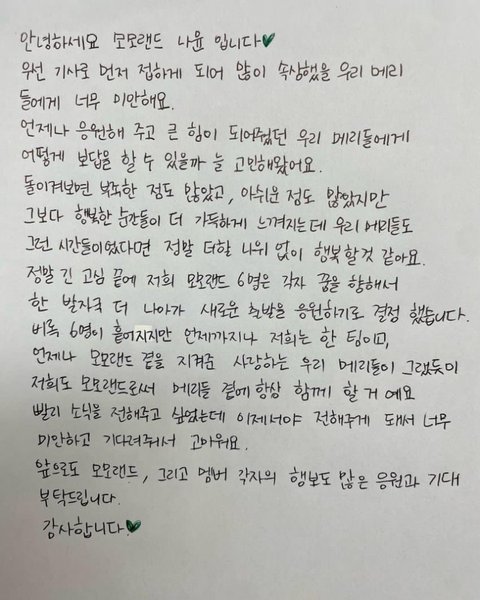 안녕하세요 모모랜드 나윤 입니다💚
우선 기사로 먼저 접하게 되어 많이 속상했을 우리 메리
들에게 너무 미안해요.
언제나 응원해 주고 큰 힘이 되어줬던 우리 메리들에게
어떻게 보답을 할 수 있을까 늘 고민해왔어요.
돌이켜보면 부족한 점도 많았고, 아쉬운 점도 많았지만
그보다 행복한 순간들이 더 가득하게 느껴지는데 우리 메리들도
그런 시간들이였다면 정말 더할 나위 없이 행복할것 같아요.
정말 긴 고심 끝에 저희 모모랜드 6명은 각자 꿈을 향해서
한 발자국 더 나아가 새로운 출발을 응원하기로 결정 했습니다.
비록 6명이 흩어지지만 언제까지나 저희는 한 팀이고,
언제나 모모랜드 곁을 지켜준 사랑하는 우리 메리들이 그랬듯이
저희도 모모랜드로써 메리들 곁에 항상 함께 할 거 예요
빨리 소식을 전해주고 싶었는데 이제서야 전해주게 돼서 너무
미안하고 기다려줘서 고마워요.
앞으로도 모모랜드, 그리고 멤버 각자의 행보도 많은 응원과 기대
부탁드립니다.
감사합니다!💚